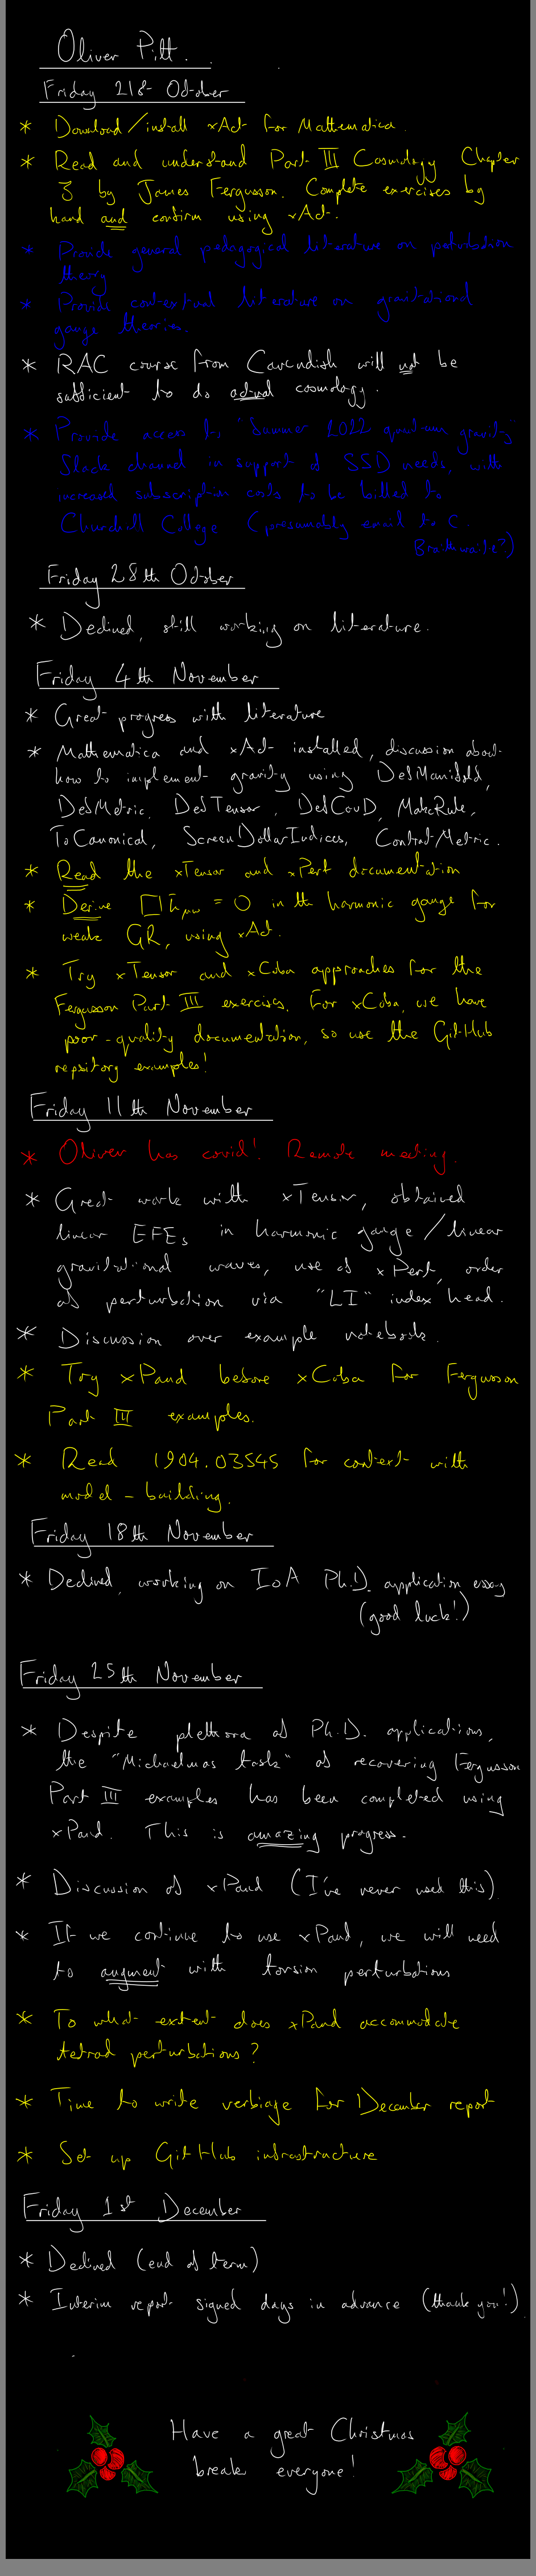 Oliver Pitt.
Friday 21st October
* Download/install xAct for Mathematica.
* Read and understand Part III Cosmology Chapter
3 by James Fergusson. Complete exercises by
hand and confirm using xAct.
* Provide general pedagogical literature on perturbation
theory
* Provide contextual literature on gravitational
gauge theories.
* RAC course from Cavendish will not be
sufficient to do actual cosmology.
* Provide access to "Summer 2022 quantum gravity"
Slack channel in support of SSD needs, with
increased subscription costs to be billed to
Churchill College. (presumably email to C.
Braithwaite?)
Friday 28th October
* Declined, still working on literature.
Friday 4th November
* Great progress with literature
* Mathematica and xAct installed, discussion about
how to implement gravity using DefManifold,
DefMetric, DefTensor, DefCovD, MakeRule,
ToCanonical, ScreenDollarIndices, ContractMetric.
* Read the xTensor and xPert documentation
* Derive □h̄μν = 0 in the harmonic gauge for
weak GR, using xAct.
* Try xTensor and xCoba approaches for the
Fergusson Part III exercises. For xCoba, we have
poor-quality documentation, so use the GitHub
repository examples!
Friday 11th November
* Oliver has covid! Remote meeting.
* Great work with xTensor, obtained
linear EFEs in harmonic gauge/linear
gravitational waves, use of xPert, order
of perturbation via "LI" index head.
* Discussion over example notebooks.
* Try xPand before xCoba for Fergusson
Part III examples.
* Read 1904.03545 for context with
model-building.
Friday 18th November
* Declined, working on IoA Ph.D. application essay
(good luck!)
Friday 25th November
* Despite plethora of Ph.D. applications,
the "Michaelmas task" of recovering Fergusson
Part III examples has been completed using
xPand. This is amazing progress.
* Discussion of xPand (I've never used this).
* If we continue to use xPand, we will need
to augment with torsion perturbations
* To what extent does xPand accommodate
tetrad perturbations?
* Time to write verbiage for December report
* Set up GitHub infrastructure
Friday 1st December
* Declined (end of term)
* Interim report signed days in advance (thank you!)
Have a great Christmas
break everyone!